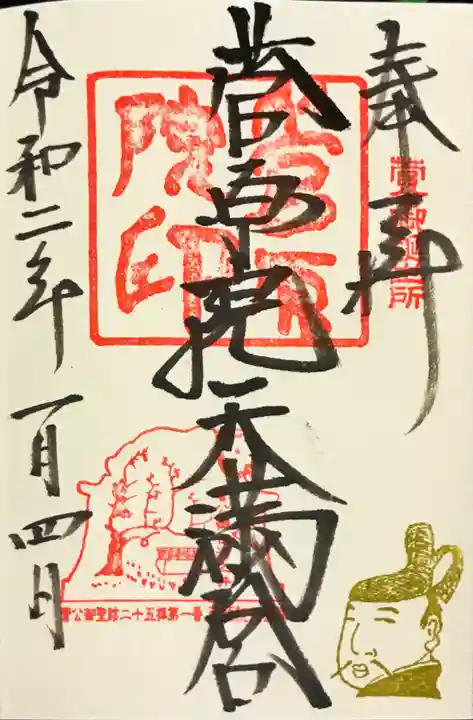 奉拝
菅原院天満宮
令和二年一月四日
菅原院印
菅公御聖蹟二十五拝第一番